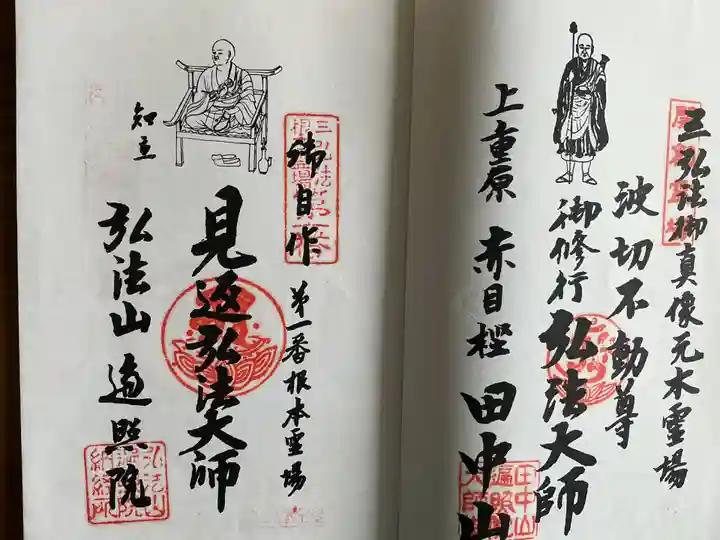 三弘法御真像元木霊場
波切不動尊
御修行弘法大師
上重原 赤目樫 田中山
御自作 第一番根本霊場
見返弘法大師
知立
弘法山 遍照院